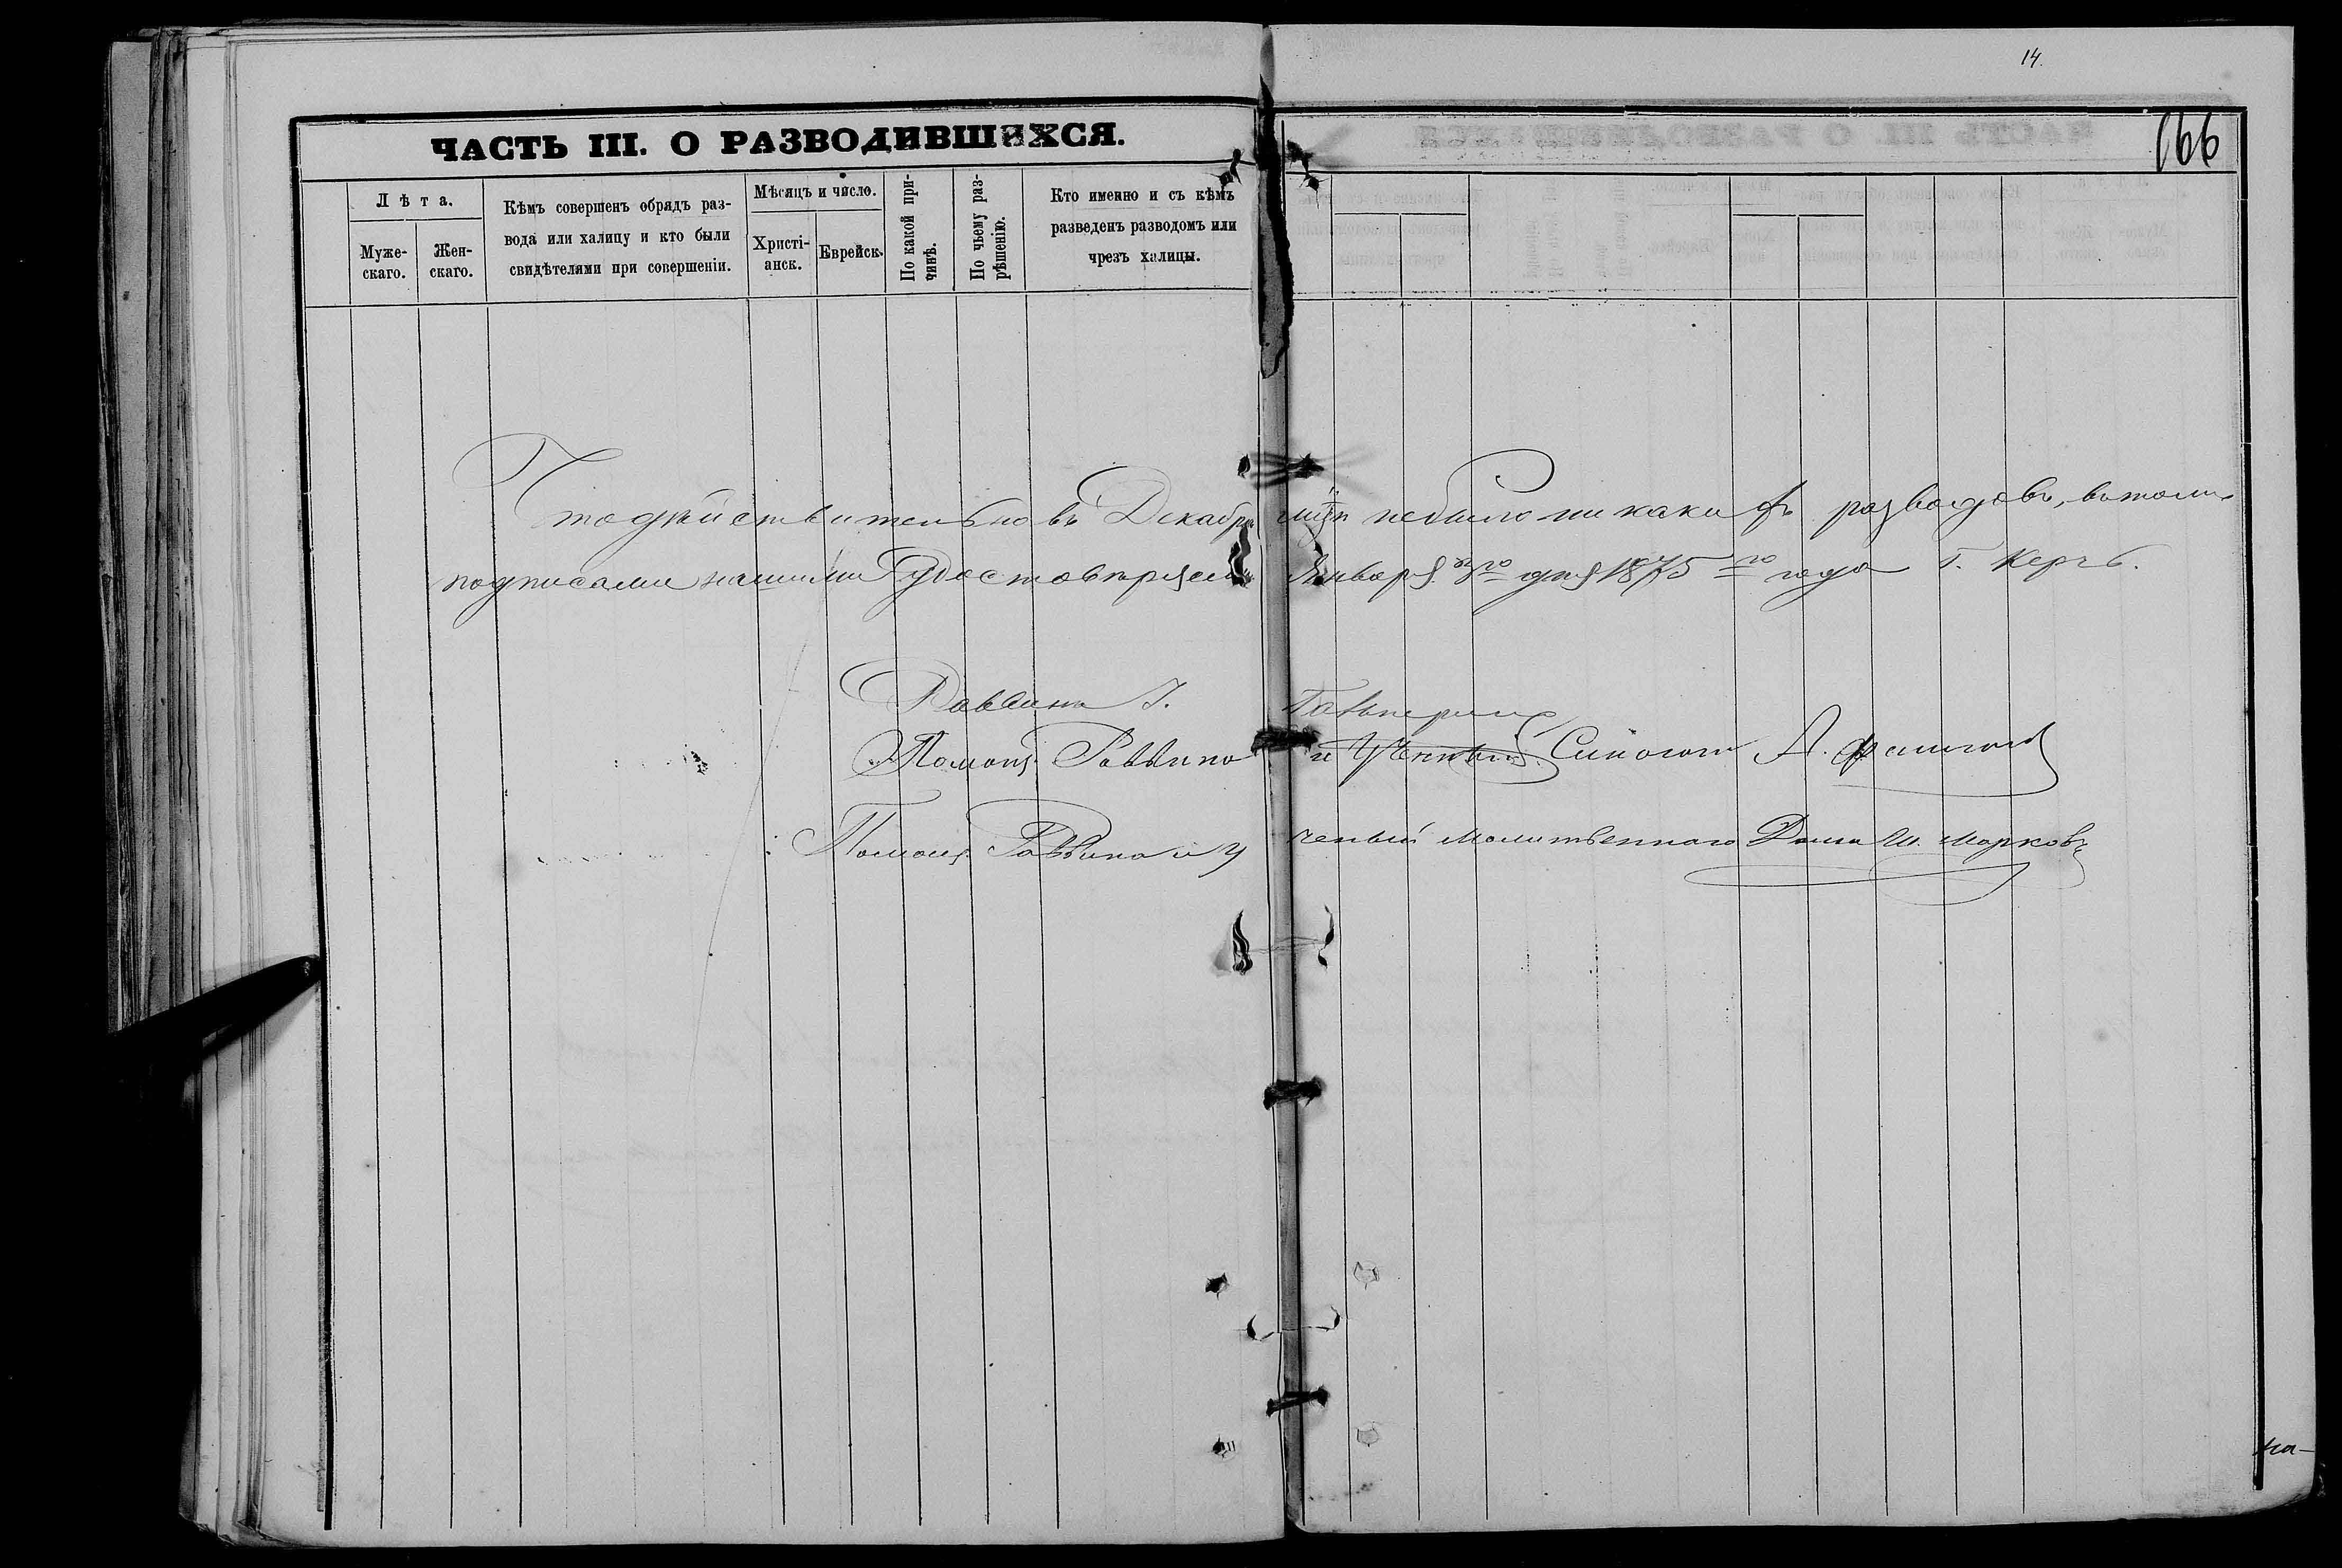 14.
166
ЧАСТЬ III. О РАЗВОДИВШИХСЯ.
Лѣта.
Муже-
скаго.
Жен-
скаго.
Кѣмъ совершенъ обрядъ раз-
вода или халицу и кто были
свидѣтелями при совершеніи.
Мѣсяцъ и число.
Христі-
анск.
Еврейск.
По какой при-
чинѣ.
По чьему раз-
рѣшенію.
Кто именно и съ кѣмъ
разведенъ разводомъ или
чрезъ халицы.
Что действительно въ Декабрѣ небыло никакихъ разводовъ, въ томъ
подписами нашими удостовѣряемъ Января го дня 1875го года Г. Керчь.
Раввинъ I.
Помощ. Раввина и Ученый А.
Помощ. Раввина и Ученый Молитвеннаго Дома Ш. Марковъ
на-